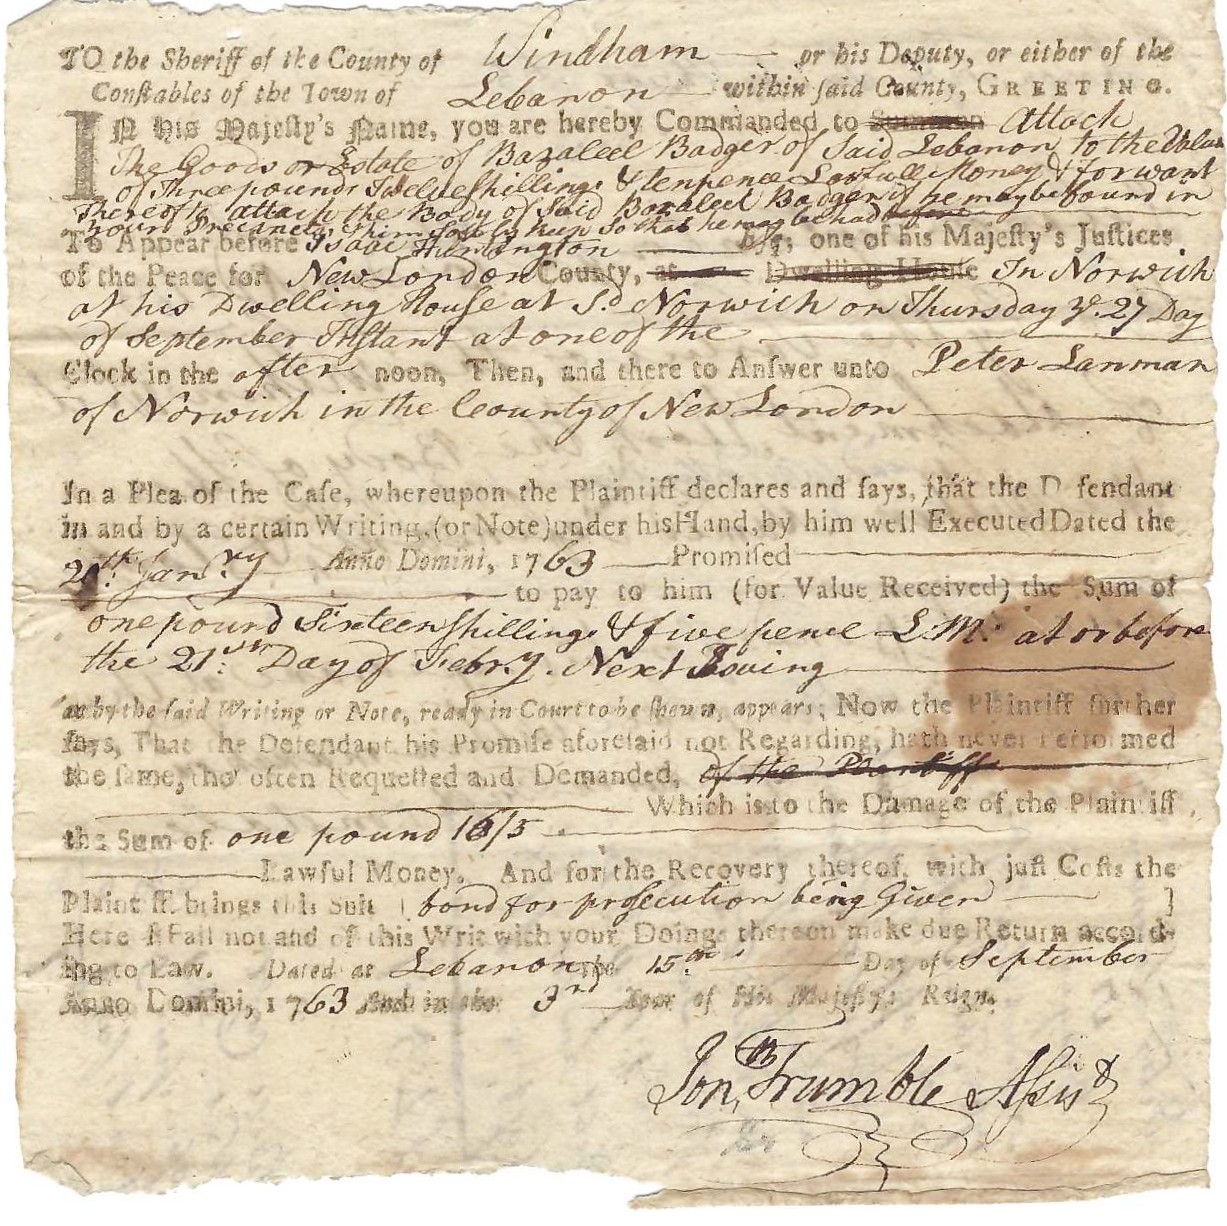 TO the Sheriff of the County of Windham — or his Deputy, or either of the
Conſtables of the Town of Lebanon — within ſaid County, GREETING.
IN His Majeſty's Name, you are hereby Commanded to Summon Attach
The Goods or Estate of Bazaleel Badger of Said Lebanon To the Value
of Three pounds Twelve Shillings & tenpence Lawfull Money & for want
Thereof to attach the Body of Said Bazaleel Badger if he may be found in
your Precincts & him safely keep So that he may be had before
To Appear before Isaac Huntington — Esq; one of his Majeſty's Juſtices
of the Peace for New London County, at Dwelling Houſe In Norwich
at his Dwelling House at Sd. Norwich on Thursday ye. 27 Day
of September Instant at one of the
Clock in the after noon, Then, and there to Anſwer unto Peter Lanman
of Norwich in the County of New London
In a Plea of the Caſe, whereupon the Plaintiff declares and ſays, that the D fendant
in and by a certain Writing, (or Note) under his Hand, by him well Executed Dated the
Janry Anno Domini, 1763 — Promiſed
to pay to him (for Value Received) the Sum of
one pound Sixteen Shillings & five pence L:M: at or before
the 21st Day of Febry. Next
as by the ſaid Writing or Note, ready in Court to be ſhewn, appears; Now the Plaintiff further
ſays, That the Defendant his Promiſe aforeſaid not Regarding, hath never Performed
the ſame, tho' often Requeſted and Demanded, of the Plantiff
Which is to the Damage of the Plaintiff
the Sum of one pound 16/5
Lawful Money. And for the Recovery thereof, with juſt Coſts the
Plaintiff brings this Suit [bond for prosecution being Given — ]
Here ſ Fail not and of this Writ with your Doings thereon make due Return accord-
ing to Law. Dated at Lebanon the 15th — Day of September
Anno Domini, 1763 And in the 3rd Year of His Majeſty's Reign.
Jonth Trumble Assist